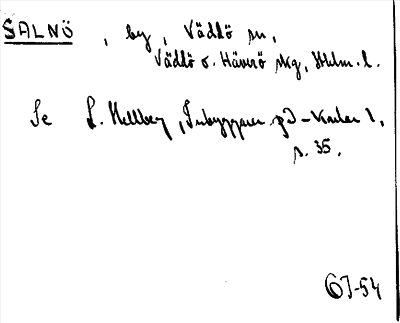 SALNÖ, by, Väddö sn,
Väddö o. Häverö skg, Sthlm. l.
Se L. Hellberg, Inbyggarn. på -karlar 1,
s. 35.
GJ-54